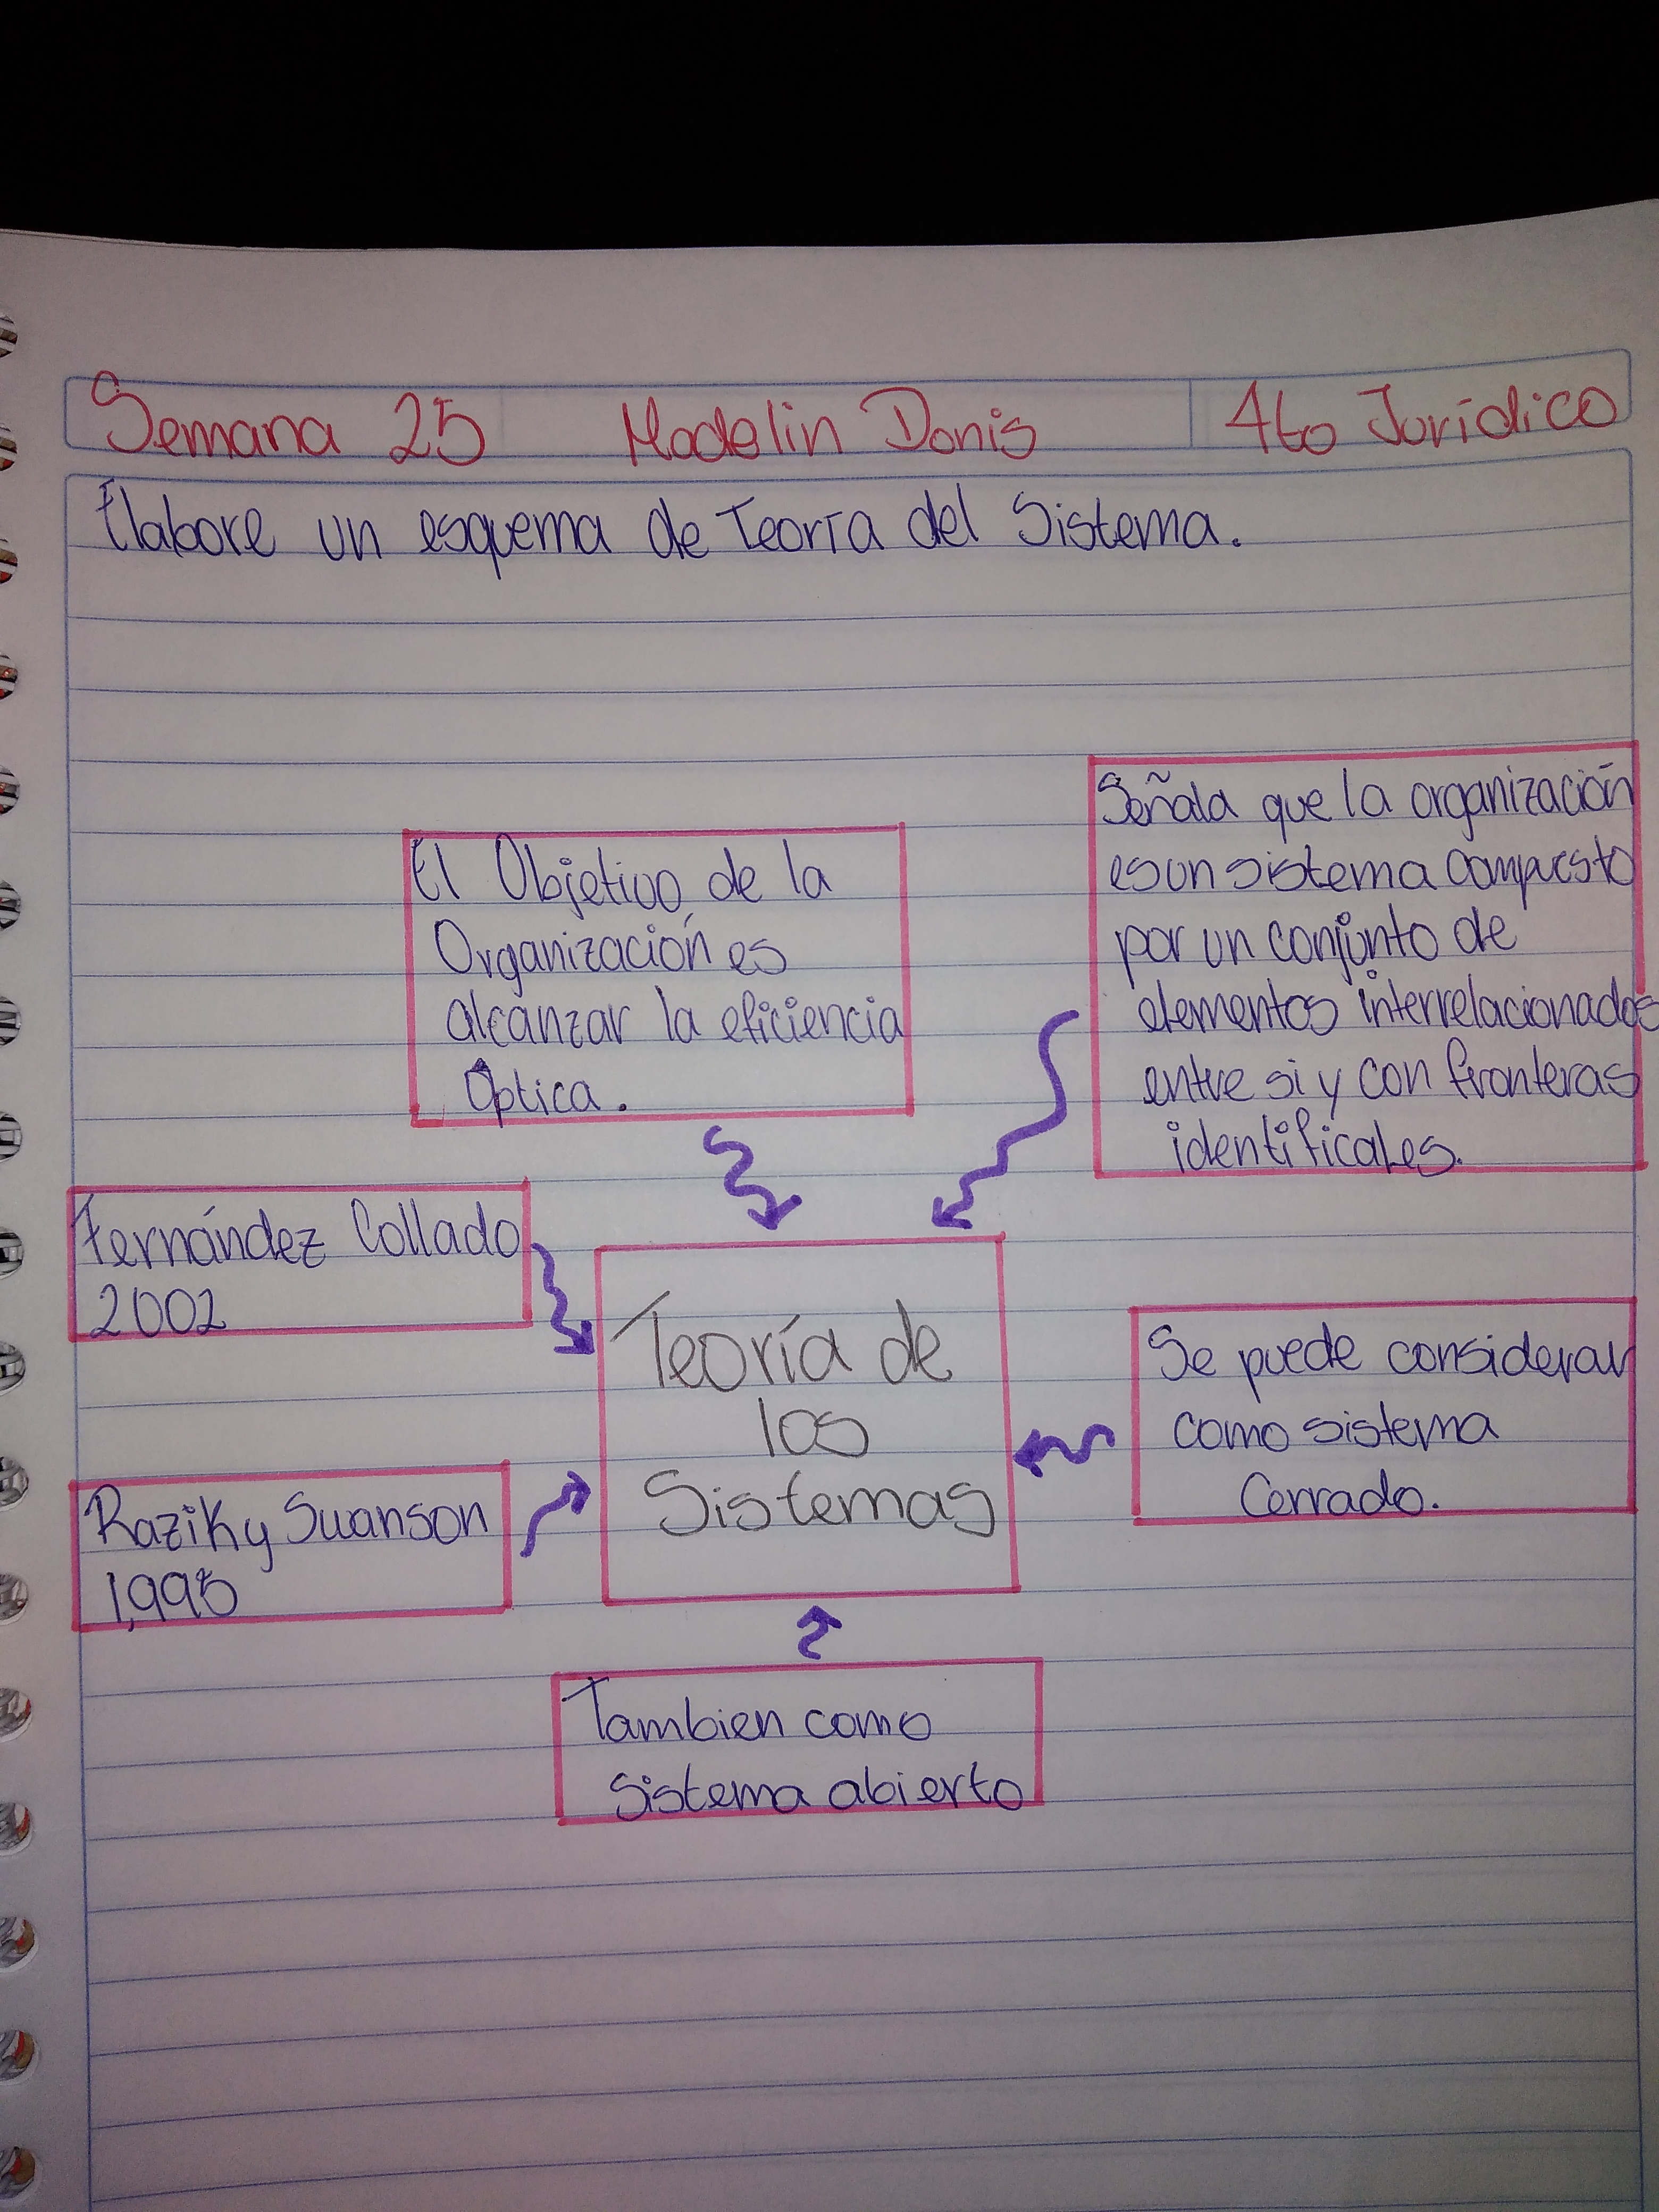 Semana 25 Madelin Donis 4to Jurídico
Elabore un esquema de Teoría del Sistema.
El Objetivo de la
Organización es
alcanzar la eficiencia
Óptica.
Señala que la organización
es un sistema compuesto
por un conjunto de
elementos interrelacionados
entre si y con fronteras
identificales.
Fernández Collado
2002
Teoría de
los
Sistemas
Se puede considerar
como sistema
Cerrado.
Razik y Swanson
1,995
Tambien como
sistema abierto